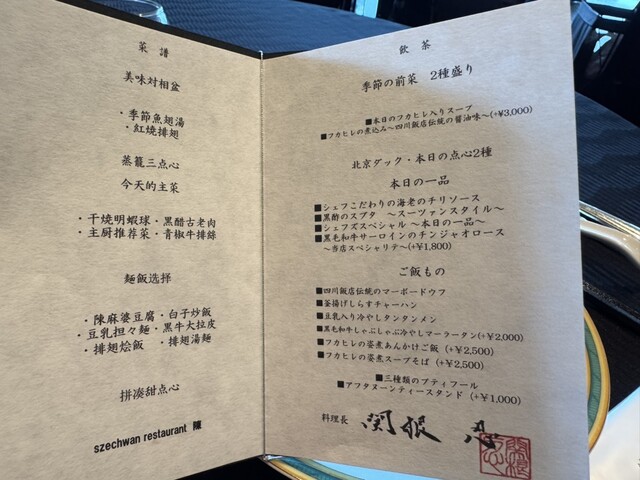 菜 譜
美味対相盆
・季節魚翅湯
・紅焼排翅
蒸籠三点心
今天的主菜
・干焼明蝦球・黒醋古老肉
・主厨推荐菜・青椒牛排絲
麺飯选择
・陳麻婆豆腐・白子炒飯
・豆乳担々麺・黒牛大拉皮
・排翅烩飯 ・排翅湯麺
拼凑甜点心
szechwan restaurant 陳
飲 茶
季節の前菜 2種盛り
■本日のフカヒレ入りスープ
■フカヒレの煮込み～四川飯店伝統の醤油味～(+￥3,000)
北京ダック・本日の点心2種
本日の一品
■シェフこだわりの海老のチリソース
■黒酢のスブタ ～スーツァンスタイル～
■シェフズスペシャル ～本日の一品～
■黒毛和牛サーロインのチンジャオロース
～当店スペシャリテ～(+￥1,800)
ご飯もの
■四川飯店伝統のマーボードウフ
■釜揚げしらすチャーハン
■豆乳入り冷やしタンタンメン
■黒毛和牛しゃぶしゃぶ冷やしマーラータン(+￥2,000)
■フカヒレの姿煮あんかけご飯 (+￥2,500)
■フカヒレの姿煮スープそば (+￥2,500)
■三種類のプティフール
■アフタヌーンティースタンド (+￥1,000)
料理長 関根 忍